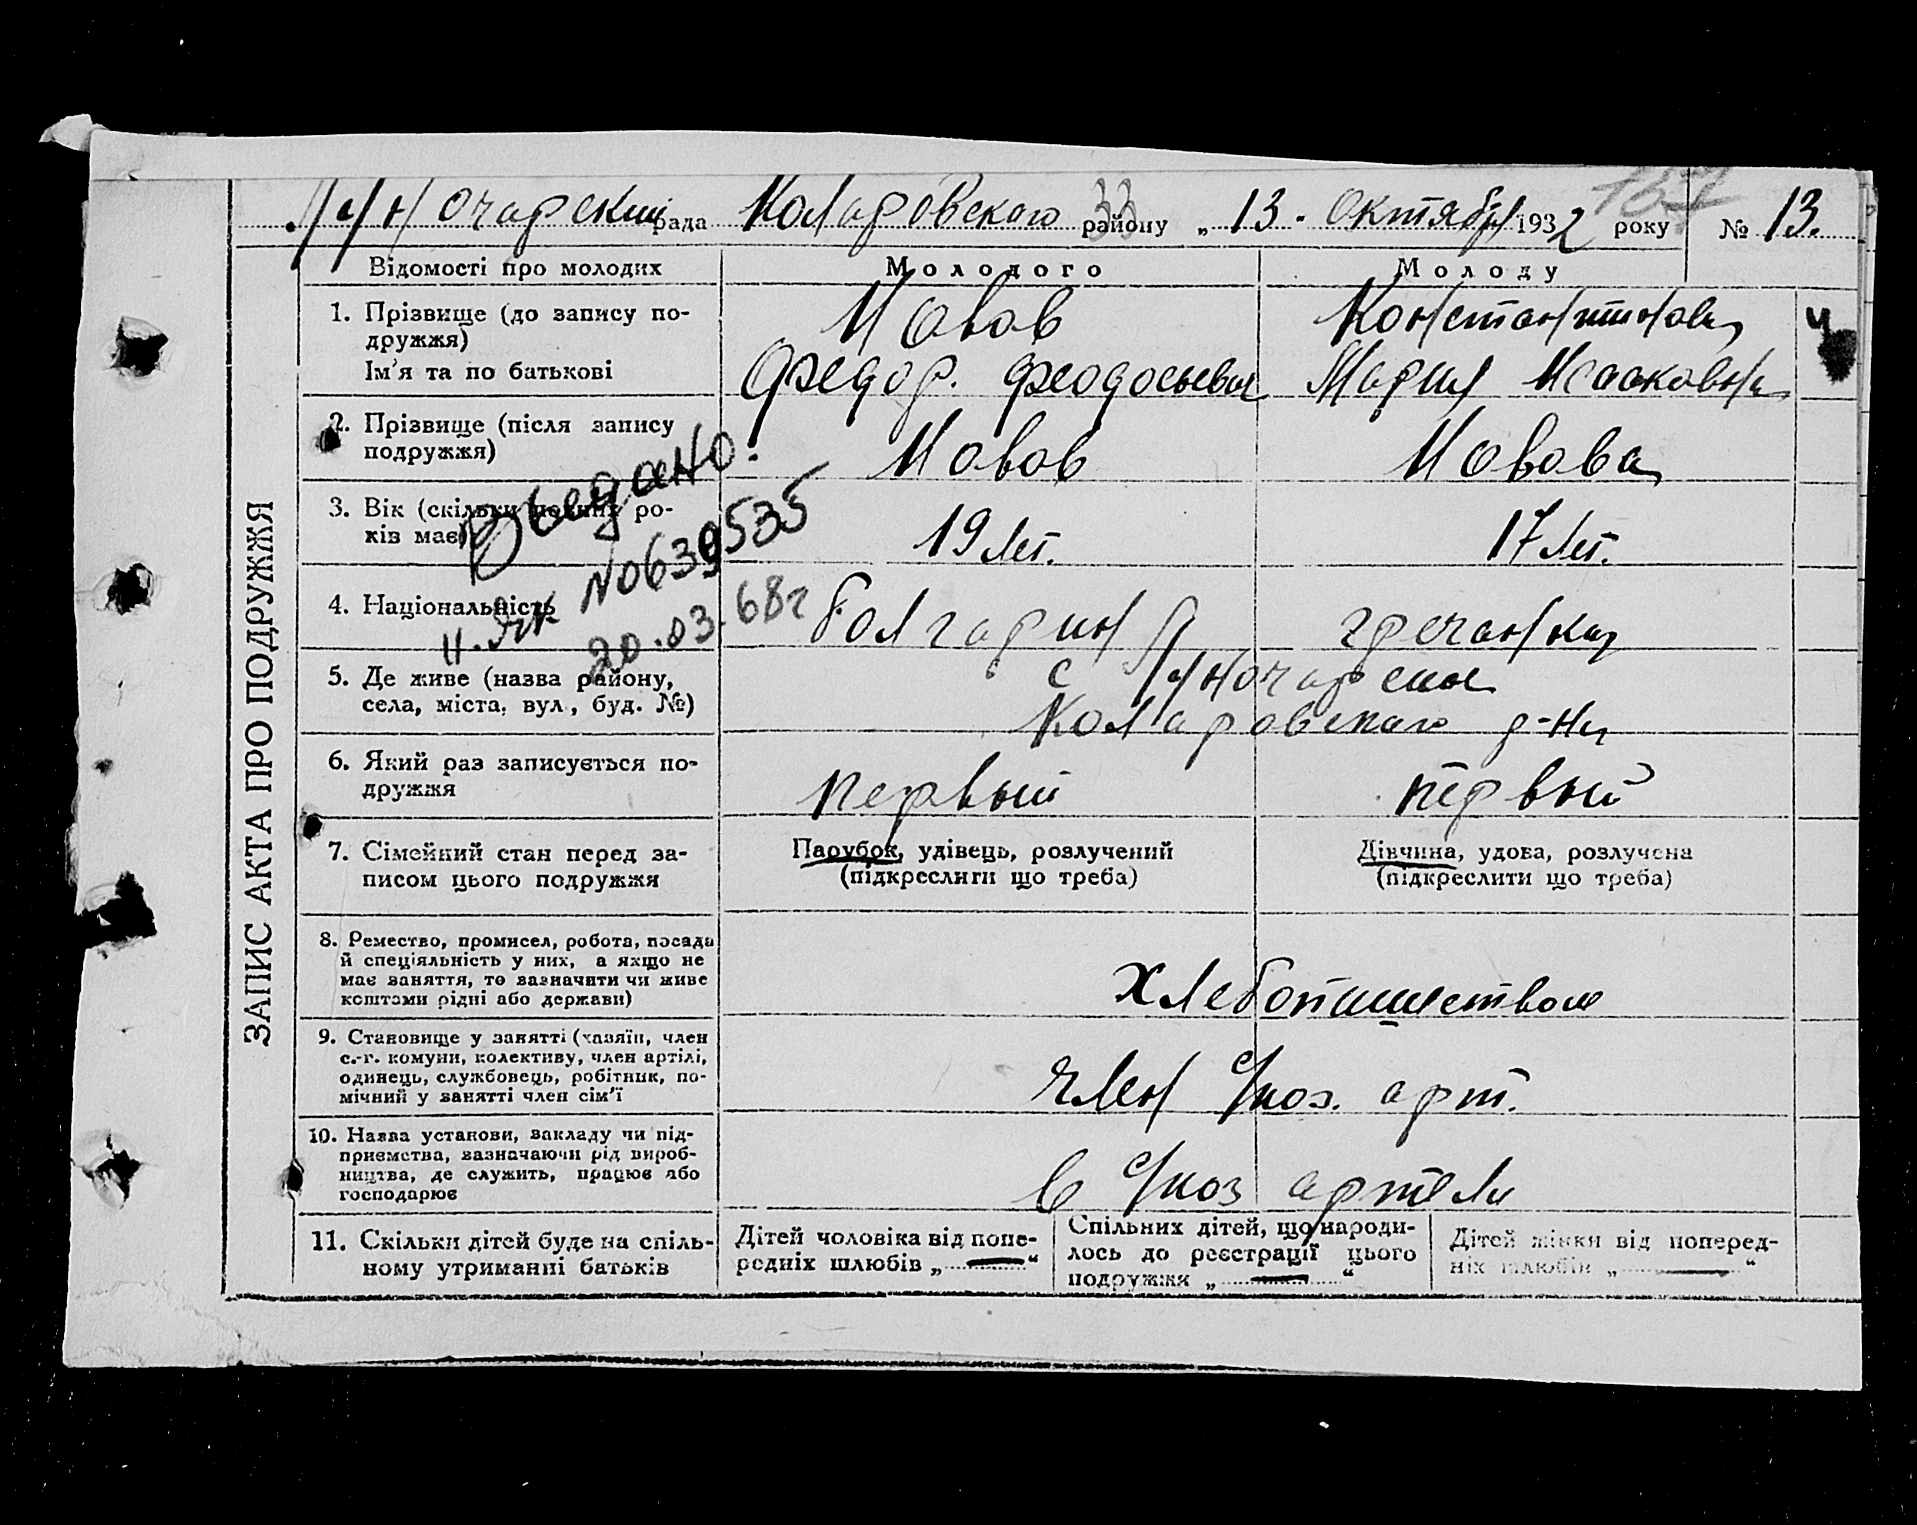 Луночарский рада Коларовского району „13. Октября 1932 року № 13.
Відомості про молодих Молодого Молоду
1. Прізвище (до запису по-
дружжя)
Новов Константинова
Ім'я та по батькові
Федор. Феодосьевич Мария Исааковна
2. Прізвище (після запису
подружжя)
Новов Новова
3. Вік (скільки повних ро-
ків має)
19 лет. 17 лет.
Выдано.
№0639535
20.03.68г
4. Національність
болгарин гречанка
5. Де живе (назва району,
села, міста, вул., буд. №)
с Луночарск
Коларовского р-на
6. Який раз записується по-
дружжя
первый первый
7. Сімейний стан перед за-
писом цього подружжя
Парубок, удівець, розлучений
(підкреслити що треба)
Дівчина, удова, розлучена
(підкреслити що треба)
8. Ремество, промисел, робота, посада
й спеціяльність у них, а якщо не
має заняття, то зазначити чи живе
коштами рідні або держави)
Хлебопашество
9. Становище у занятті (хазяїн, член
с.-г. комуни, колективу, член артілі,
одинець, службовець, робітник, по-
мічний у занятті член сім'ї
член с/хоз. арт.
10. Назва установи, закладу чи під-
приємства, зазначаючи рід вироб-
ництва, де служить, працює або
господарює
в с/хоз артели
11. Скільки дітей буде на спіль-
ному утриманні батьків
Дітей чоловіка від попе-
редніх шлюбів „ — “
Спільних дітей, що народи-
лось до реєстрації цього
подружжя „ — “
Дітей жінки від поперед-
ніх шлюбів „ — “
ЗАПИС АКТА ПРО ПОДРУЖЖЯ